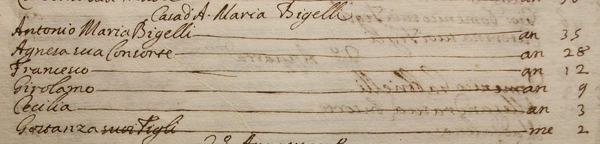 Casa d A. Maria Bigelli
Antonio Maria Bigelli an 35
Agnesa sua Consorte an 28
Francesco an 12
Girolamo an 9
Cecilia an 3
Gostanza suoi Figli me 2